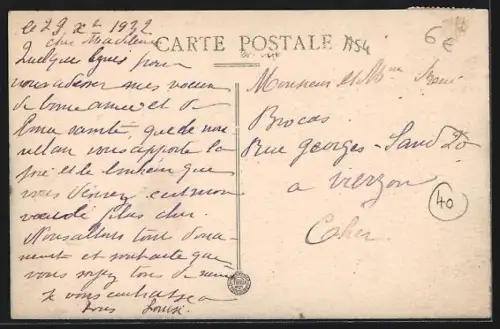 le 29 Xbre 1932
chère Madeleine
Quelques lignes pour
vous adresser mes voeux
de bonne année et de
bonne santé, que de nouvel an vous apporte la
joie et le bonheur que
vous désirez est mon
voeu le plus cher.
Nous allons tous
et souhaite que
vous soyez tous de même
Je vous embrasse
tous Louise
CARTE POSTALE
A54
6€
Monsieur et Mme René
Brocas
Rue Georges-Sand 20
a Vierzon
Cher
40